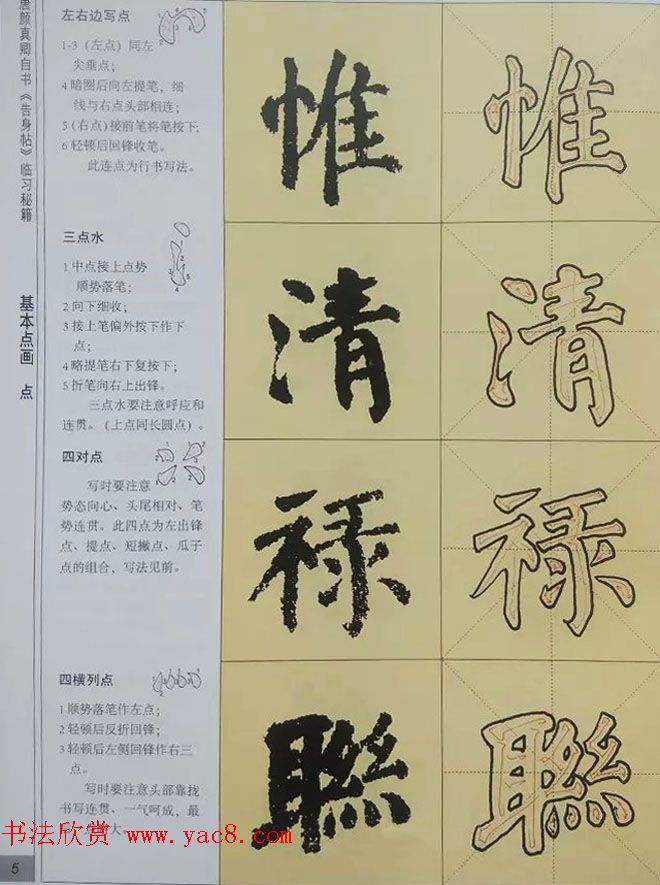 唐颜真卿自书《告身帖》临习秘籍
基本点画 点
左右边写点
1-3（左点）同左
尖垂点；
4 暗圈后向左提笔，细
线与右点头部相连；
5（右点）接前笔将笔按下；
6 轻顿后回锋收笔。
此连点为行书写法。
惟
惟
三点水
1 中点接上点势
顺势落笔；
2 向下细收；
3 接上笔偏外按下作下
点；
4 略提笔右下复按下；
5 折笔向右上出锋。
三点水要注意呼应和
连贯。（上点同长圆点）。
清
清
四对点
写时要注意
势态向心、头尾相对、笔
势连贯。此四点为左出锋
点、提点、短撇点、瓜子
点的组合，写法见前。
禄
禄
四横列点
1 顺势落笔作左点；
2 轻顿后反折回锋；
3 轻顿后左侧回锋作右三
点。
写时要注意头部靠拢
书写连贯、一气呵成，最
大。
聮
聮
书法欣赏 www.yac8.com
5